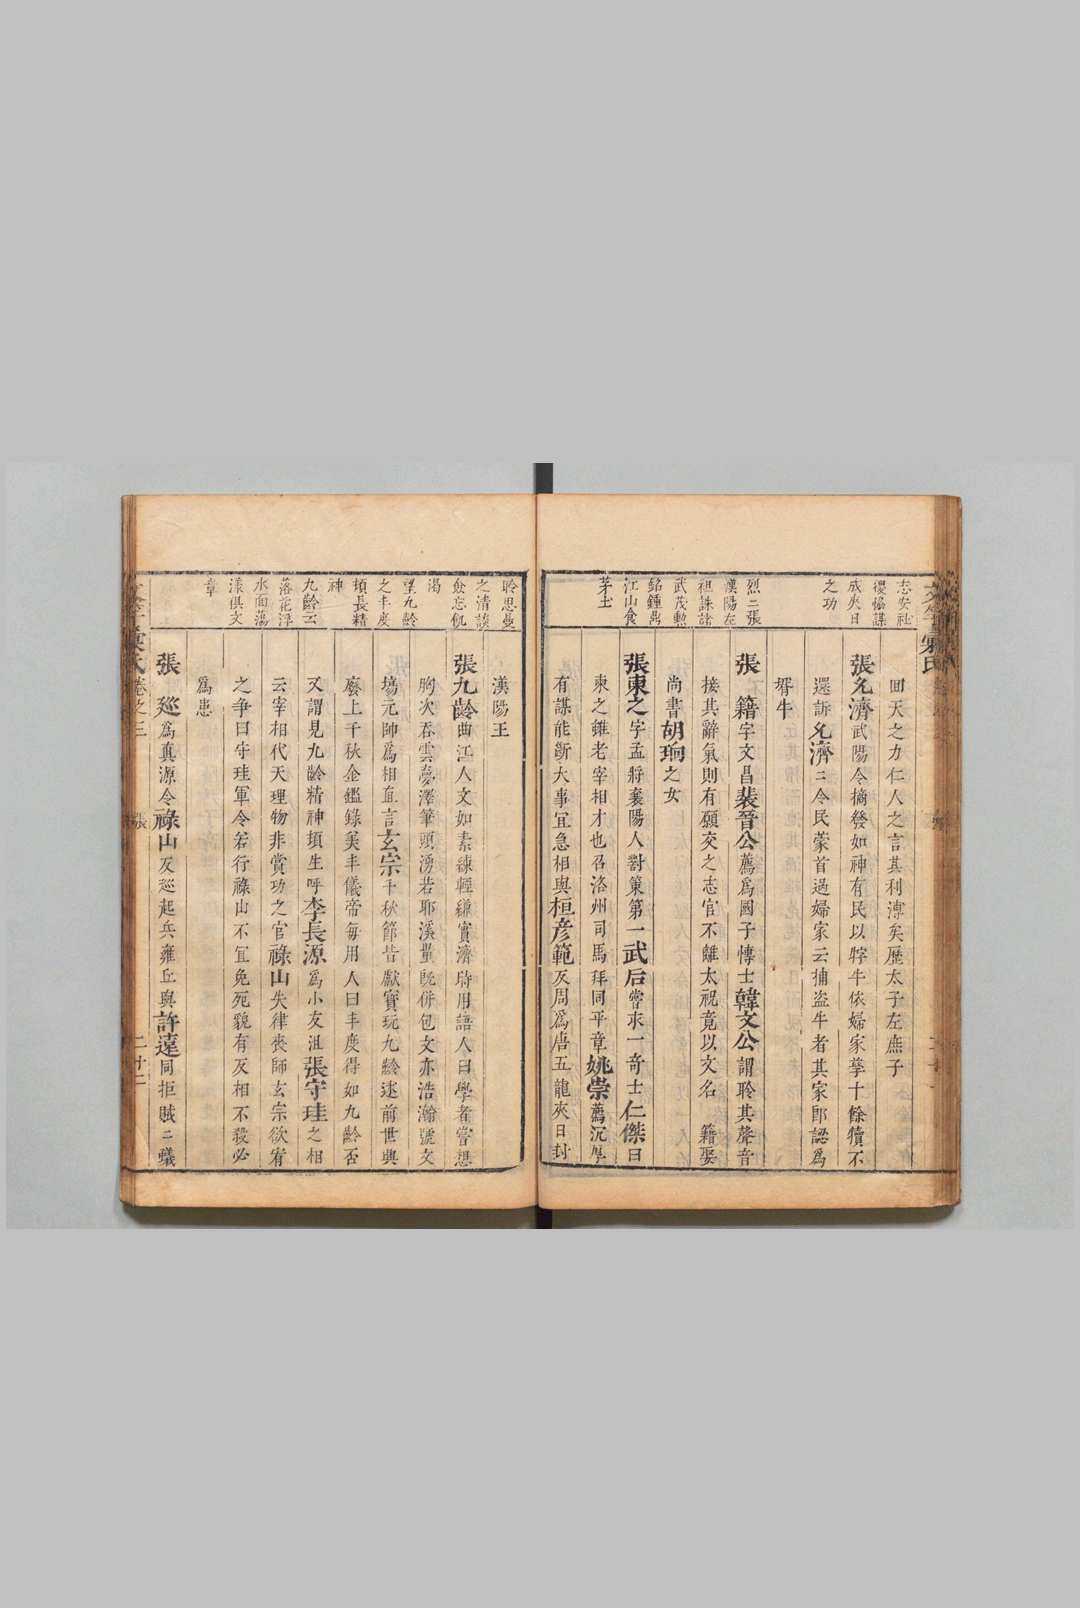 志安社
稷協謀
成夾日
之功
烈二張
漢陽左
袒誅諸
武茂勲
銘鍾鼎
江山食
茅土
回天之力仁人之言其利溥矣歷太子左庶子
張允濟武陽令摘發如神有民以牸牛依婦家孳十餘犢不
還訴允濟二令民蒙首過婦家云捕盗牛者其家即認爲
壻牛
張　籍字文昌裴晉公薦爲國子博士韓文公謂聆其聲音
接其辭氣則有願交之志官不離太祝竟以文名　籍娶
尚書胡珦之女
張柬之字孟將襄陽人對策第一武后嘗求一奇士仁傑曰
柬之雖老宰相才也召洛州司馬拜同平章姚崇薦沉厚
有謀能斷大事宜急相與桓彥範反周爲唐五龍夾日封
聆思曼
之清談
僉忘飢
渴
望九齡
之丰度
頓長精
神
九齡云
落花浮
水面蕩
漾俱文
章
漢陽王
張九齡曲江人文如素練輕縑實濟時用語人曰學者常想
胸次吞雲夢澤筆頭湧若耶溪量既併包文亦浩瀚號文
塲元帥爲相直言玄宗千秋節皆獻寶玩九齡述前世興
廢上千秋金鑑錄美丰儀帝每用人曰丰度得如九齡否
又謂見九齡精神頓生呼李長源爲小友沮張守珪之相
云宰相代天理物非賞功之官祿山失律喪師玄宗欲宥
之争曰守珪軍令若行祿山不宜免死貌有反相不殺必
爲患
張　巡爲真源令祿山反巡起兵雍丘與許遠同拒賊二蟻
卷之三
張
二十二